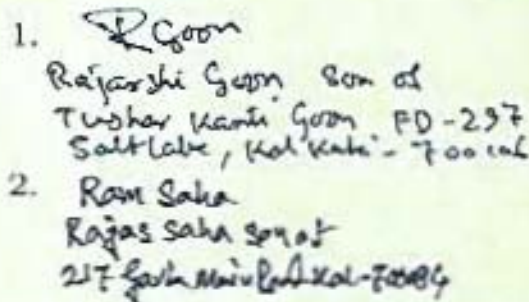 1. R Goon
Rajarshi Goon Son of
Tushar Kanti Goon FD-297
Salt Lake, Kolkata - 700106
2. Ram Saha
Rajas Saha son of
217 Garia Main Road Kol-700084